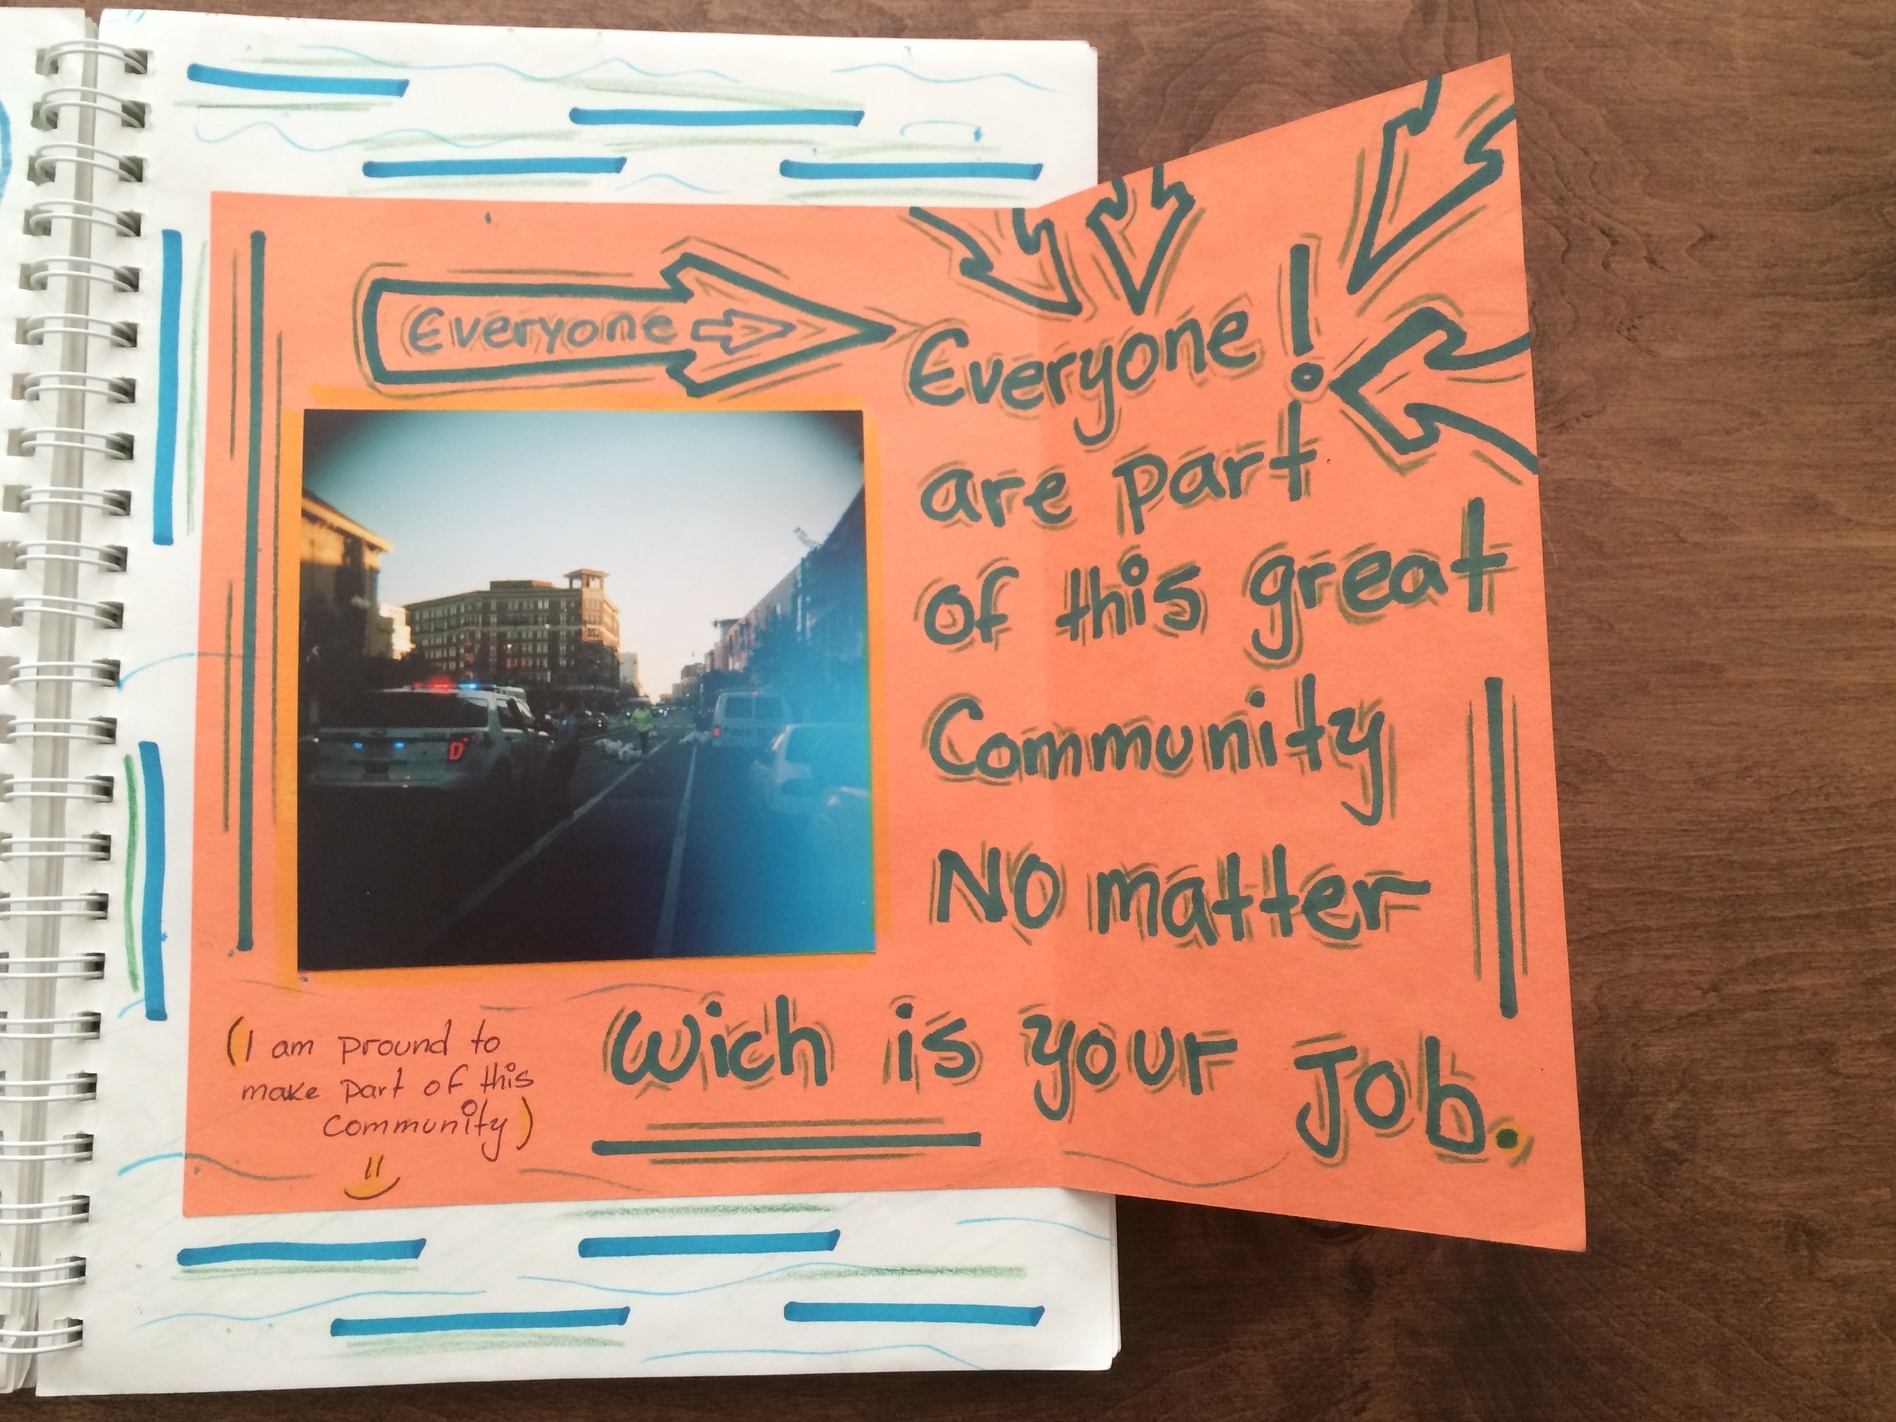 Everyone
Everyone!
are part
of this great
Community
No matter
Wich is your Job.
(I am pround to
make part of this
Community)
D